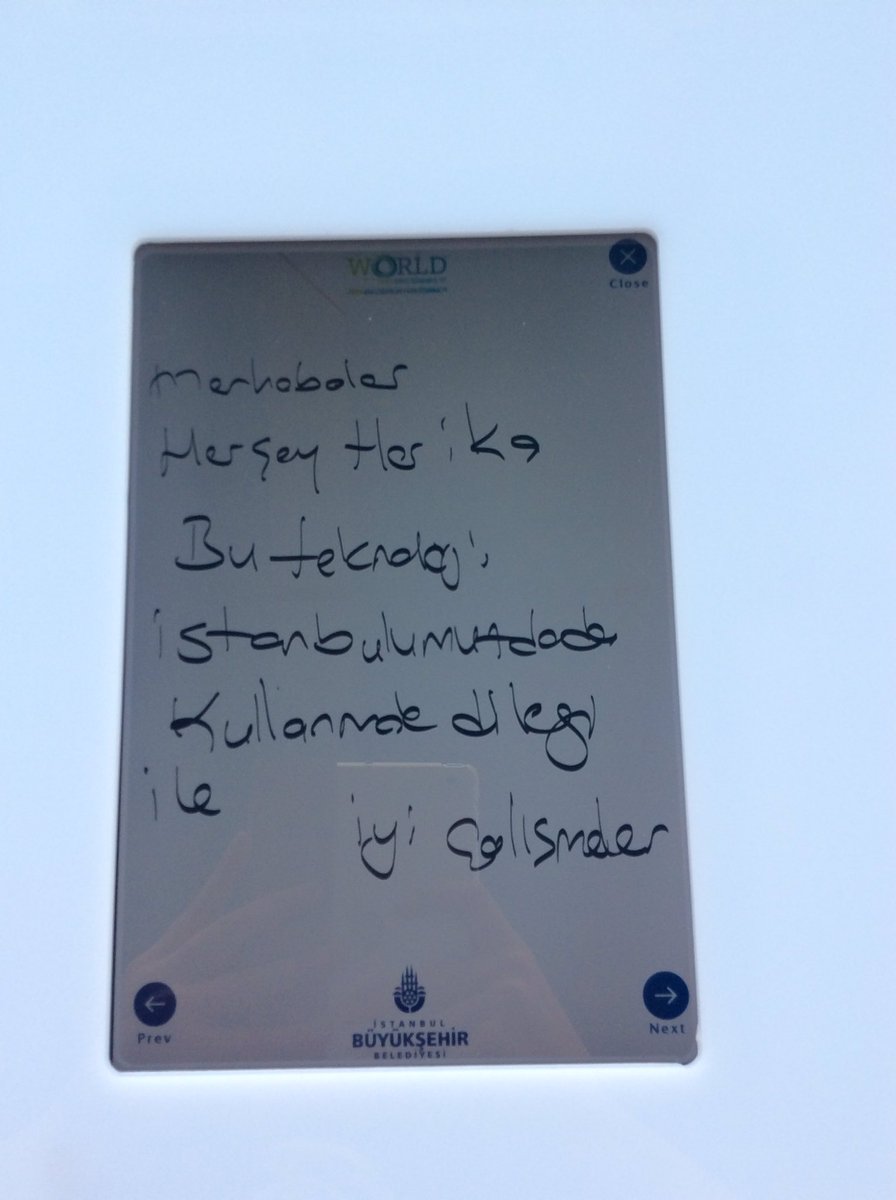 WORLD
Close
Merhabalar
Herşey Harika
Bu teknoloji
istanbulumuzdada
Kullanmak dileği
ile
iyi çalışmalar
Prev
Next
İSTANBUL
BÜYÜKŞEHİR
BELEDİYESİ